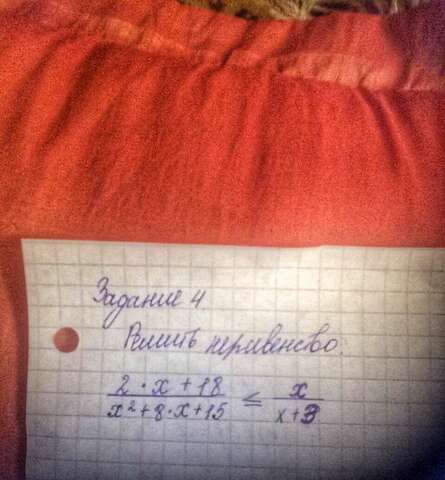 Задание 4.
Решить неравенство.
2·x+18 / x²+8·x+15 ≤ x / x+3